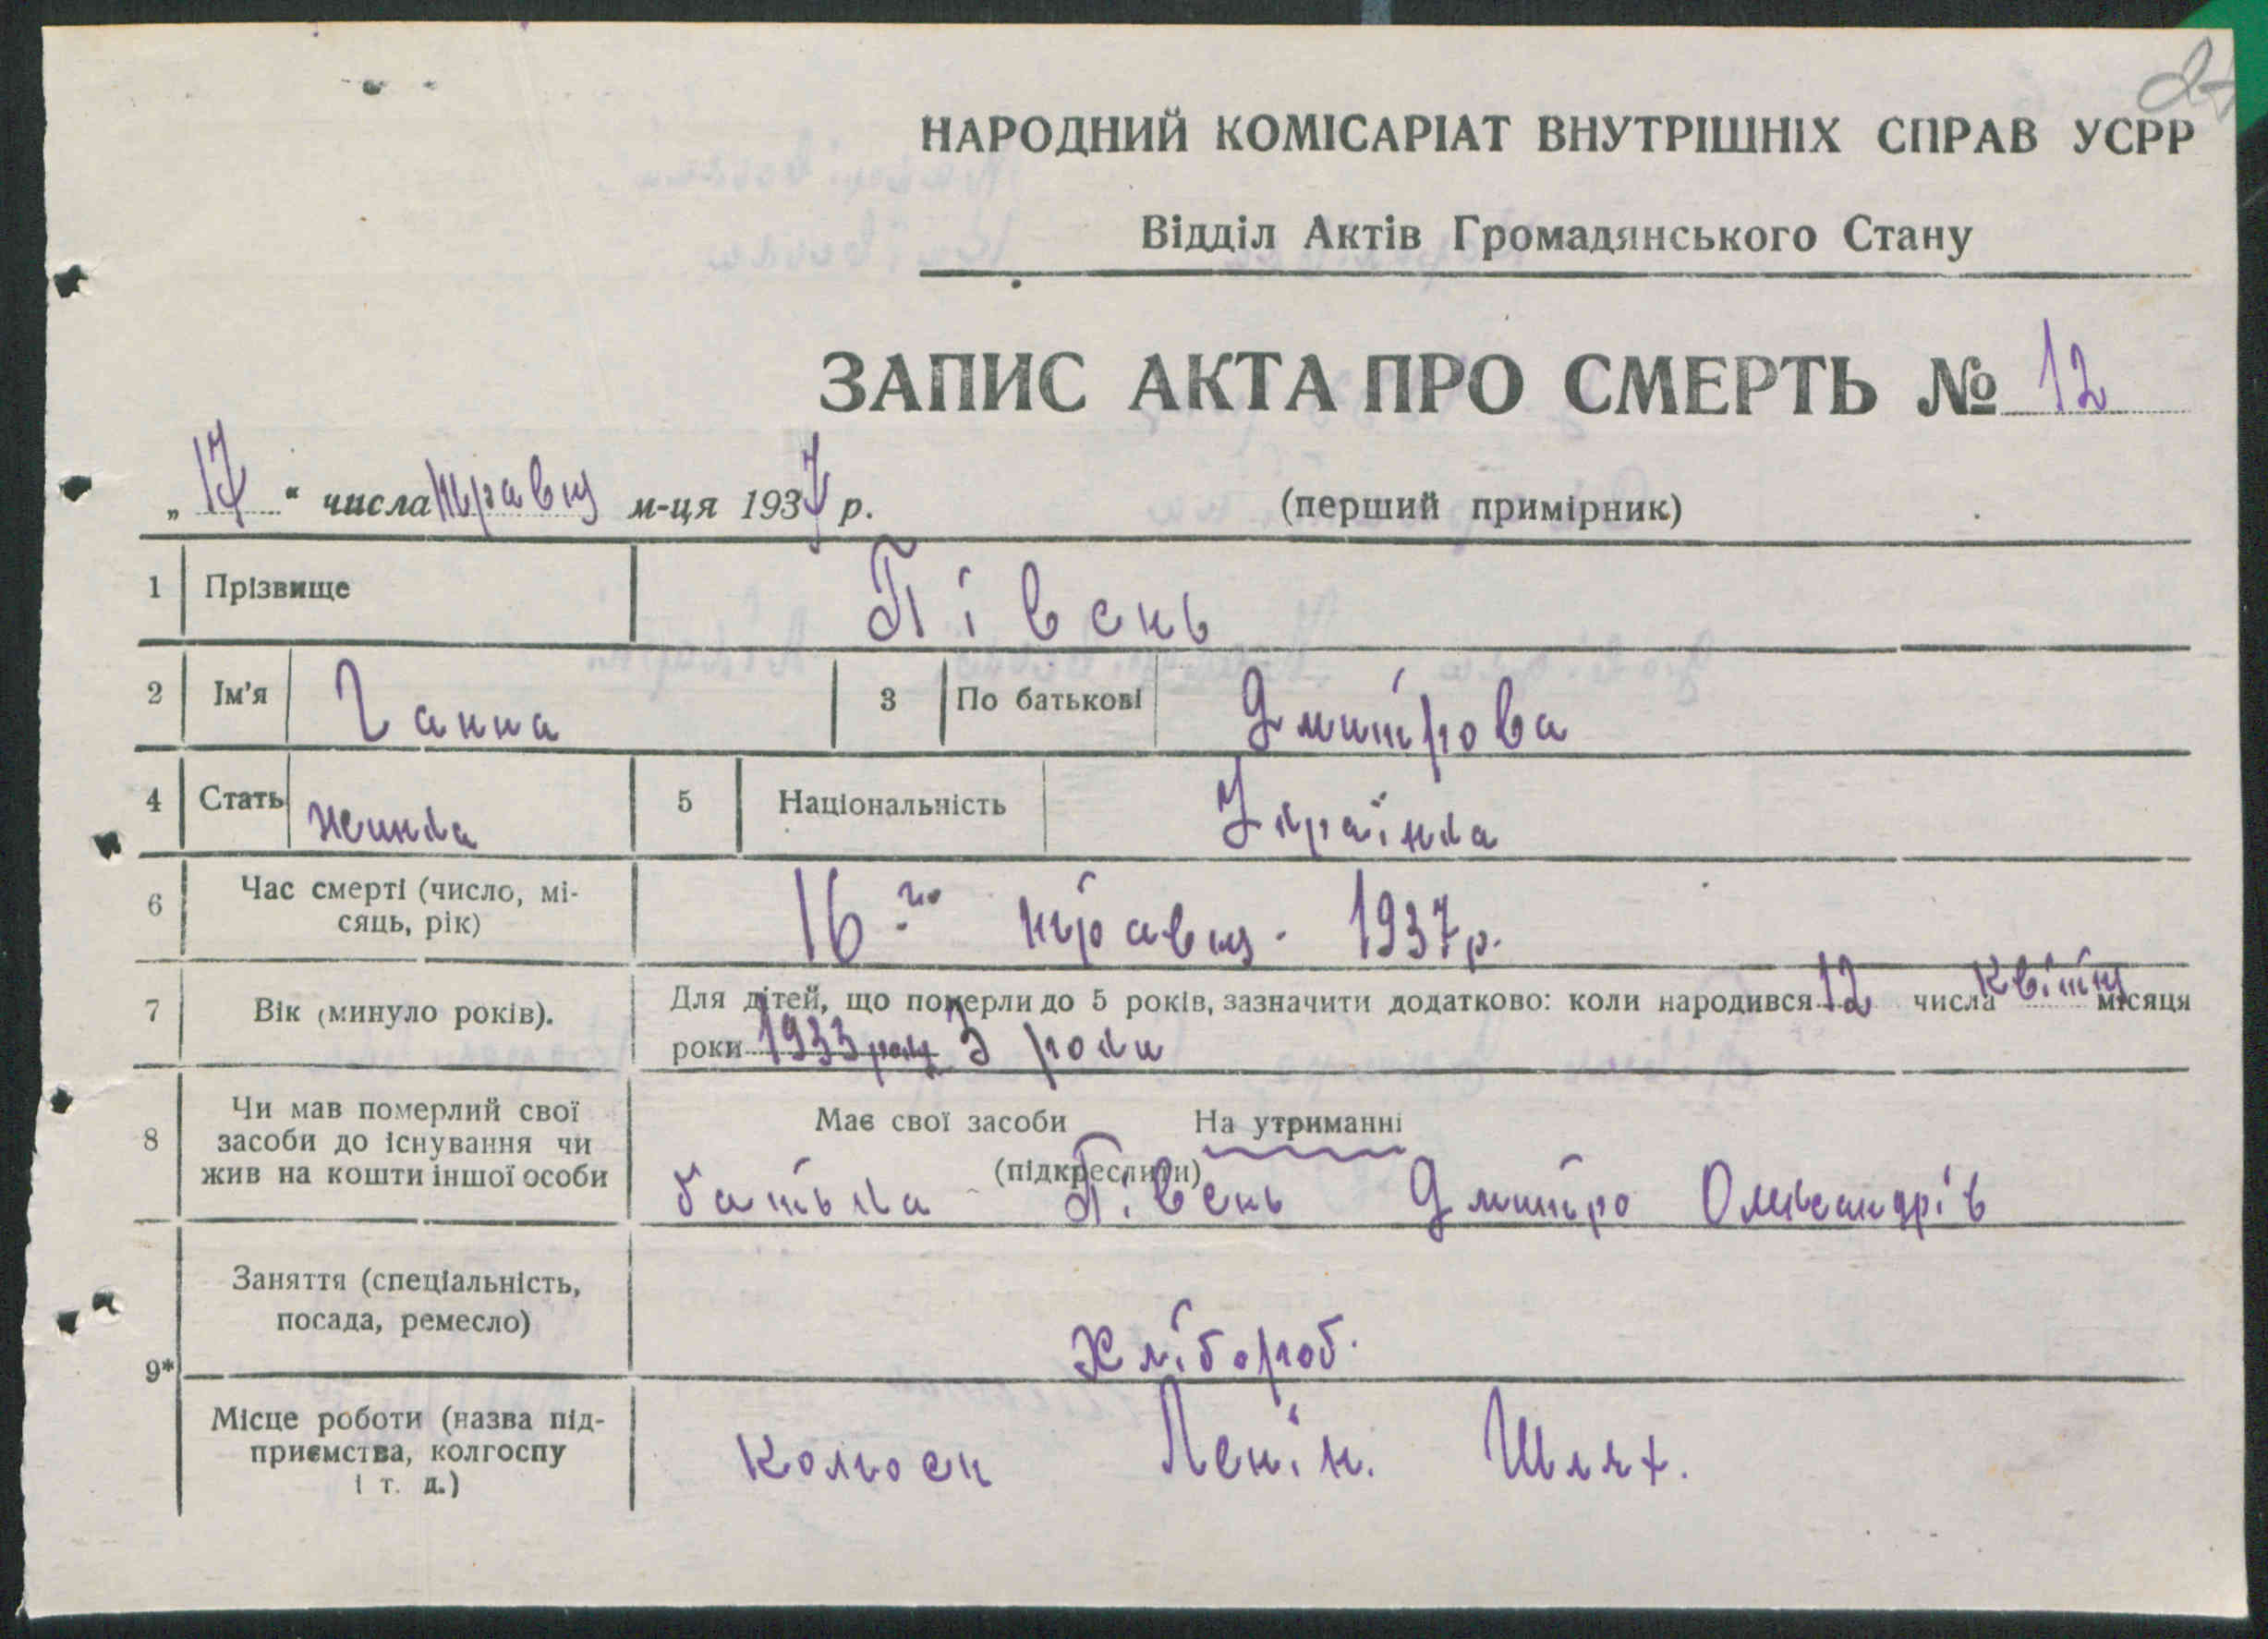 НАРОДНИЙ КОМІСАРІАТ ВНУТРІШНІХ СПРАВ УСРР
Відділ Актів Громадянського Стану
ЗАПИС АКТА ПРО СМЕРТЬ № 12
„ 17 “ числа травня м-ця 1937 р. (перший примірник)
1 Прізвище Півень
2 Ім'я Ганна 3 По батькові Дмитрова
4 Стать жинка 5 Національність Українка
6 Час смерті (число, мі-
сяць, рік) 16 го травня. 1937 р.
7 Вік (минуло років). Для дітей, що померли до 5 років, зазначити додатково: коли народився 12 числа квітня місяця
роки 1933 року 3 роки
8 Чи мав померлий свої
засоби до існування чи
жив на кошти іншої особи
Має свої засоби На утриманні
(підкреслити)
батька Півень Дмитро Олександрів
9*
Заняття (спеціальність,
посада, ремесло) Хлібороб.
Місце роботи (назва під-
приємства, колгоспу
і т. д.) Колгосп Ленін. Шлях.